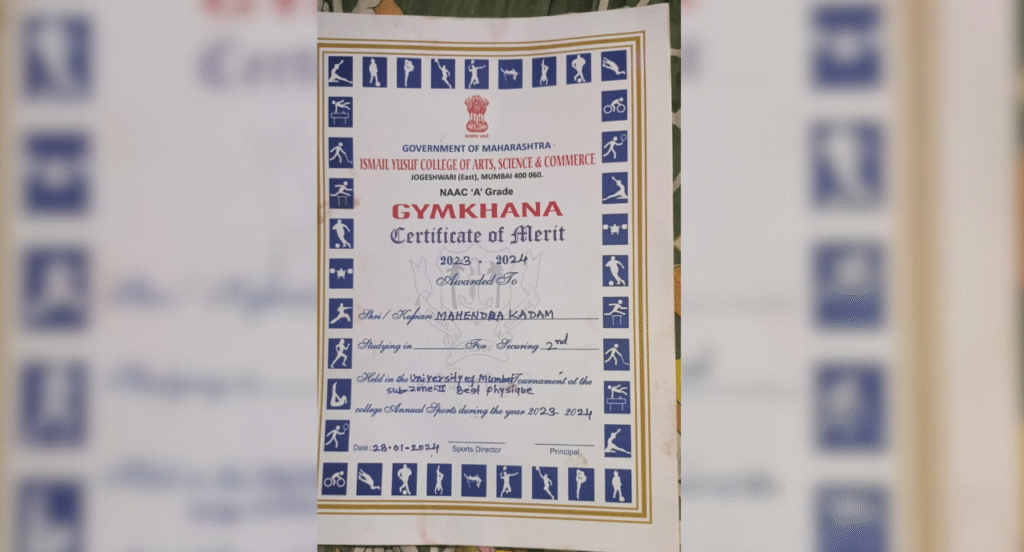 सत्यमेव जयते
GOVERNMENT OF MAHARASHTRA
ISMAIL YUSUF COLLEGE OF ARTS, SCIENCE & COMMERCE
JOGESHWARI (East), MUMBAI 400 060.
NAAC 'A' Grade
GYMKHANA
Certificate of Merit
2023 - 2024
Awarded To
Shri / Kumari MAHENDRA KADAM
Studying in For Securing 2nd
Held in the University of Mumbai Tournament at the
sub-zone-II Best physique
college Annual Sports during the year 2023-2024
Date: 28-01-2024 Sports Director Principal